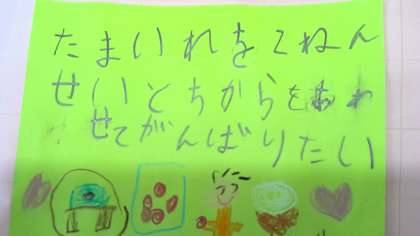 たまいれを2ねん
せいとちからをあわ
せてがんばりたい